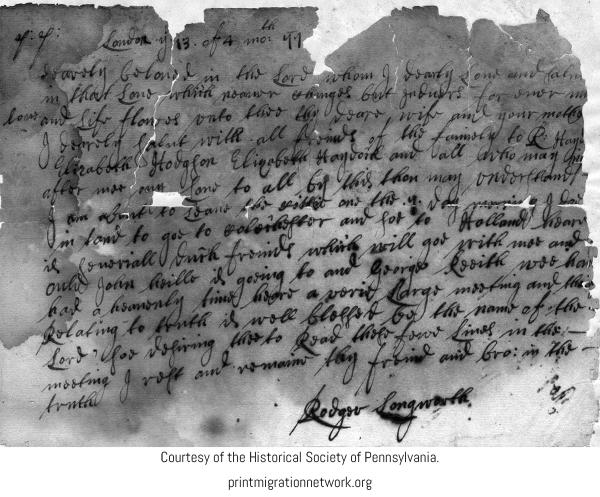 London y 13. of 4 mo:th 77
dearely beloved in the Lord whom I dearly Love and salut
in that Love which never changes but indures for ever m
love and Life flowes unto thee thy deare wife and your mothe
I dearely salut with all friends of the famely to R Hayd
Elizabeth Hodgson Elizabeth Haydock and all who may
after mee our Love to all by this thou may understand
I am about to Leave the one the day I doe
in tend to go to colchester and soe to Holland heare
is severall duch freinds which will goe with mee and
ould John hill is going to and George Keeith wee have
had a heavenly time heare a verie Large meeting and things
Relating to truth is well blessed be the name of the
Lord soe desiring thee to Read these fewe Lines in the
meeting I rest and remaine thy frind and bro: in the
truth
Rodger Longworth
Courtesy of the Historical Society of Pennsylvania.
printmigrationnetwork.org